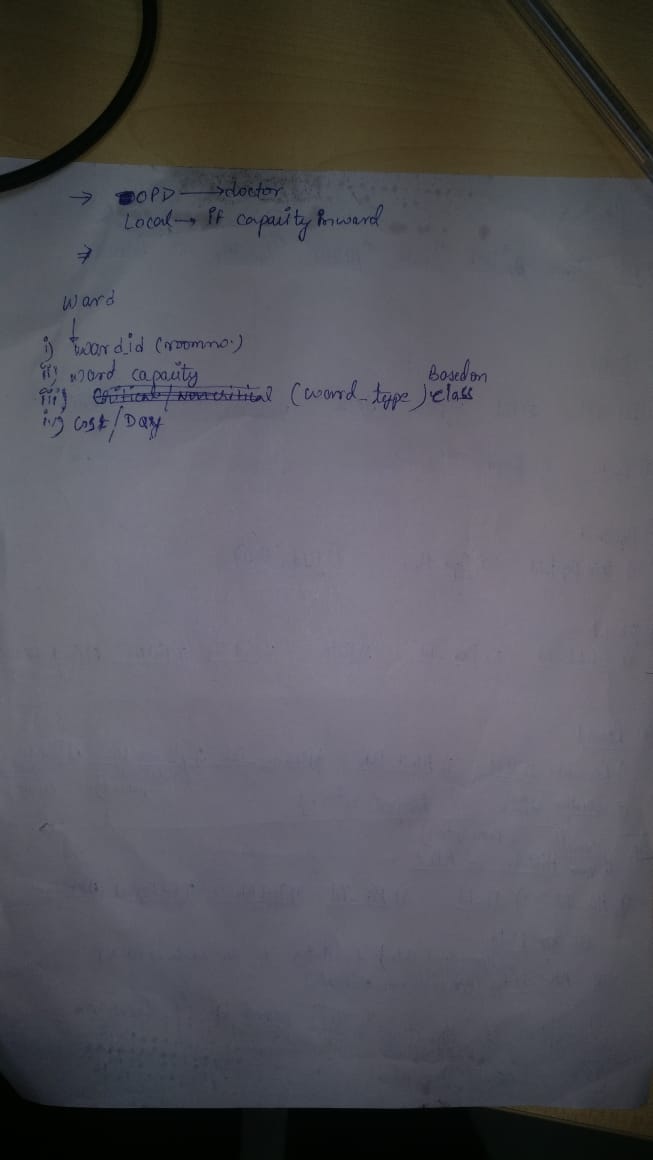 → OPD → doctor
Local → if capacity forward
⇒
ward
↓
i) ward_id (roomno.)
ii) ward capacity
iii) Critical / Non critical (ward_type) Based on class
iv) Cost/Day